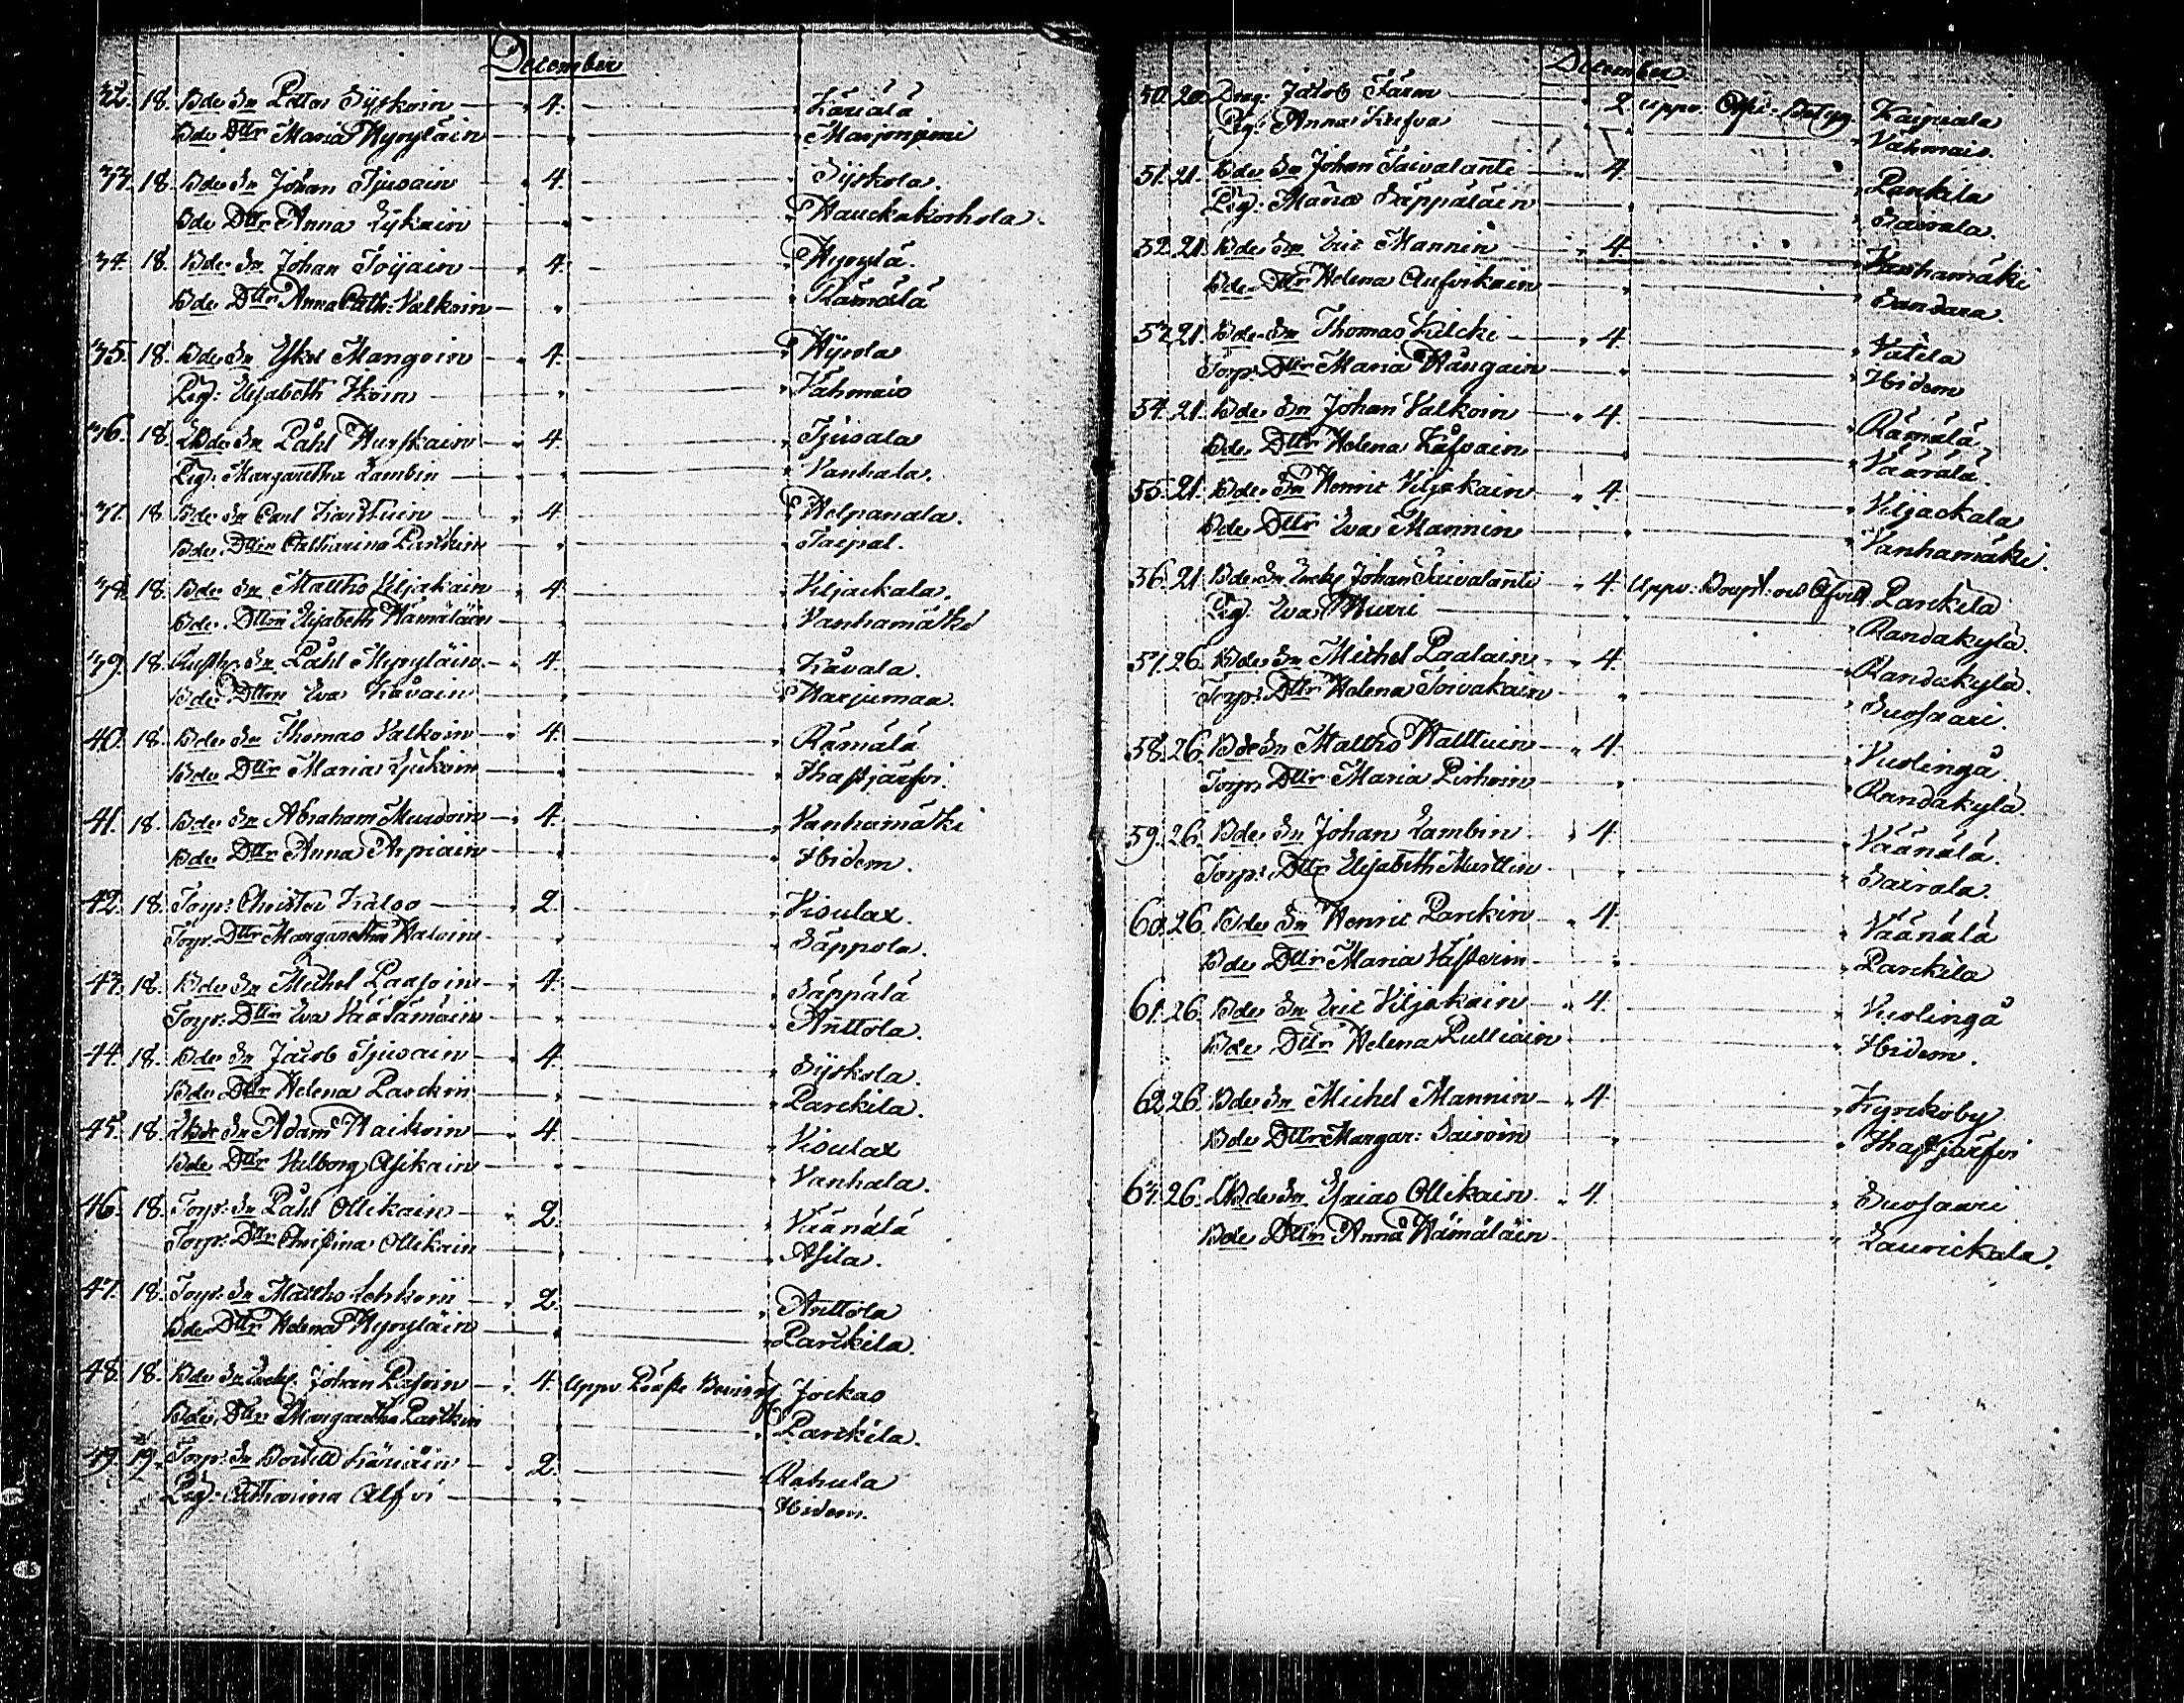 December
32. 18. Bde Sn Petter Syskoin 4. Käriälä
Bde Dttr Maria Hyryläin Marjoniemi
33. 18. Bde Sn Johan Tjusain 4. Syskola.
Bde Dttr Anna Lykain Hauckakorhola.
34. 18. Bde Sn Johan Toijain 4. Hyrylä.
Bde Dttr Anna Cath: Valkoin Rämälä
35. 18. Bde Sn Eskel Mangoin 4. Hyrola
Pig: Elisabeth Ikoin Vahmais
36. 18. LBde Sn Påhl Hurskain 4. Tjusala
Pig: Margaretha Lambin Vanhala.
37. 18. Bde Sn Carl Karttuin 4. Helpanala.
Bde Dttr Catharina Parckin Taipal.
38. 18. Bde Sn Matths Viljakain 4. Viljackala.
Bde Dttr Elisabeth Hämäläin Vanhamäki
39. 18. Sn Påhl Hyryläin 4. Kåvala.
Bde Dttr Eva Kåvain Harjumaa.
40. 18. Bde Sn Thomas Valkoin 4. Rämälä
Bde Dttr Maria Ihastjärfvi.
41. 18. Bde Sn Abraham 4. Vanhamäki
Bde Dttr Anna Arpiain Ibidem.
42. 18. Torp: Christer 2. Visulax.
Torp: Dttr Margaretha Säppola.
43. 18. Bde Sn Michel Paasoin 4. Säppälä
Torp: Dttr Eva Väätämöin Anttola.
44. 18. Bde Sn Jacob Tjusain 4. Syskola.
Bde Dttr Helena Parckin Parckila.
45. 18. LBde Sn Adam Haikoin 4. Visulax
Bde Dttr Valborg Asikain Vanhala.
46. 18. Torp: Sn Påhl Ollikain 2. Väänälä
Torp: Dttr Christina Ollikain Asila.
47. 18. Torp: Sn Matths Lehkoin 2. Anttola
Bde Dttr Helena Hyryläin Parckila.
48. 18. Bde Sn Johan Pasoin 4. Uppv. Präste Bevis Jockas
Bde Dttr Margaretha Parckin Parckila.
49. 19. Torp: Sn Bertill Käriäin 2. Rahula
Pig: Catharina Alfvi Ibidem.
December
50. 20. Drag: Jacob Färm 2 Uppv. Kaipiala
Pig: Anna Kufva Vahmais.
51. 21. Bde Sn Johan Taivalanti 4. Parckila
Pig: Maria Säppäläin Sairala.
52. 21. Bde Sn Eric Mannin 4. Vanhamäki
Bde Dttr Helena Aufvikain Sandara.
53. 21. Bde Sn Thomas Kilcki 4. Vatila
Torp: Dttr Maria Hångain Ibidem
54. 21. Bde Sn Johan Valkoin 4. Rämälä
Bde Dttr Helena Väärälä.
55. 21. Bde Sn Henric Viljakain 4. Viljackala
Bde Dttr Eva Mannin Vanhamäki.
56. 21. Bde Sn Johan Taivalanti 4. Uppv: Parckila
Pig. Eva Hurri Randakylä.
57. 26. Bde Sn Michel Paalain 4. Randakylä.
Torp: Dttr Helena Toivakain Suosaari.
58. 26. Bde Sn Matths Halttuin 4. Vuolingå.
Torp: Dttr Maria Pirhoin Randakylä.
59. 26. Bde Sn Johan Lambin 4. Väänälä.
Torp: Dttr Elisabeth Murttin Sairala.
60. 26. Bde Sn Henric Parckin 4. Väänälä
Bde Dttr Maria Parckila
61. 26. Bde Sn Eric Viljakain 4. Vuolingå
Bde Dttr Helena Pulliain Ibidem.
62. 26. Bde Sn Michel Mannin 4. Kyrckoby
Bde Dttr Margar: Sairoin Ihastjärfvi
63. 26. LBde Sn Esaias Ollikain 4. Suosaari
Bde Dttr Anna Hämäläin Laurickala.